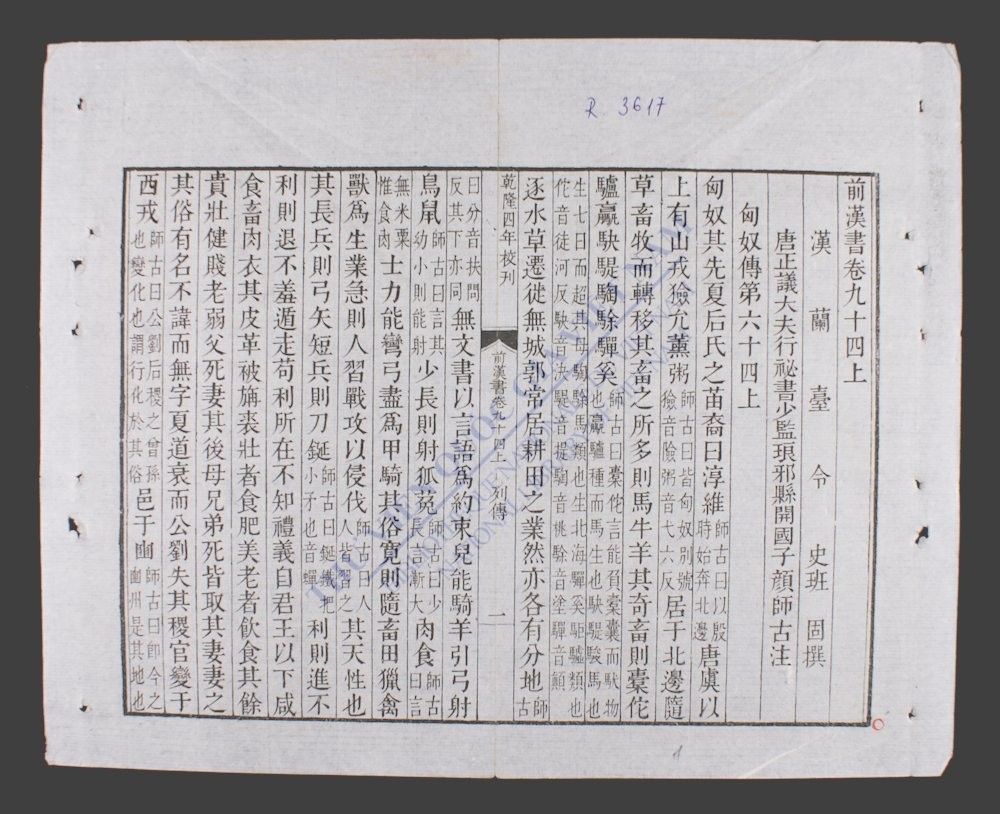 R. 3617
前漢書卷九十四上
漢蘭臺令史班固撰
唐正議大夫行祕書少監琅邪縣開國子顏師古注
匈奴傳第六十四上
匈奴其先夏后氏之苗裔曰淳維師古曰以殷時始奔北邊唐虞以
上有山戎獫允薰粥師古曰皆匈奴別號獫音險粥音弋六反居于北邊隨
草畜牧而轉移其畜之所多則馬牛羊其奇畜則橐佗
驢驘駃騠騊駼驒奚師古曰橐佗言能負橐囊而馱物也驘驢種而馬生也駃騠駿馬也
生七日而超其母騊駼馬類也生北海驒奚駏驢類也佗音徒河反駃音決騠音提騊音桃駼音塗驒音顛
逐水草遷徙無城郭常居耕田之業然亦各有分地師古
乾隆四年校刊
前漢書卷九十四上 列傳 一
曰分音扶問反其下亦同無文書以言語爲約束兒能騎羊引弓射
鳥鼠師古曰言其幼小則能射少長則射狐菟師古曰少長言漸大肉食師古曰言
無米粟惟食肉士力能彎弓盡爲甲騎其俗寬則隨畜田獵禽
獸爲生業急則人習戰攻以侵伐師古曰人人皆習之其天性也
其長兵則弓矢短兵則刀鋋師古曰鋋鐵把小矛也音蟬利則進不
利則退不羞遁走苟利所在不知禮義自君王以下咸
食畜肉衣其皮革被旃裘壯者食肥美老者飲食其餘
貴壯健賤老弱父死妻其後母兄弟死皆取其妻妻之
其俗有名不諱而無字夏道衰而公劉失其稷官變于
西戎師古曰公劉后稷之曾孫也變化也謂行化於其俗邑于豳師古曰即今之豳州是其地也
THƯ VIỆN QUỐC GIA VIỆT NAM
BIBLIOTHEQUE NATIONALE DU VIETNAM
NATIONAL LIBRARY OF VIETNAM
1